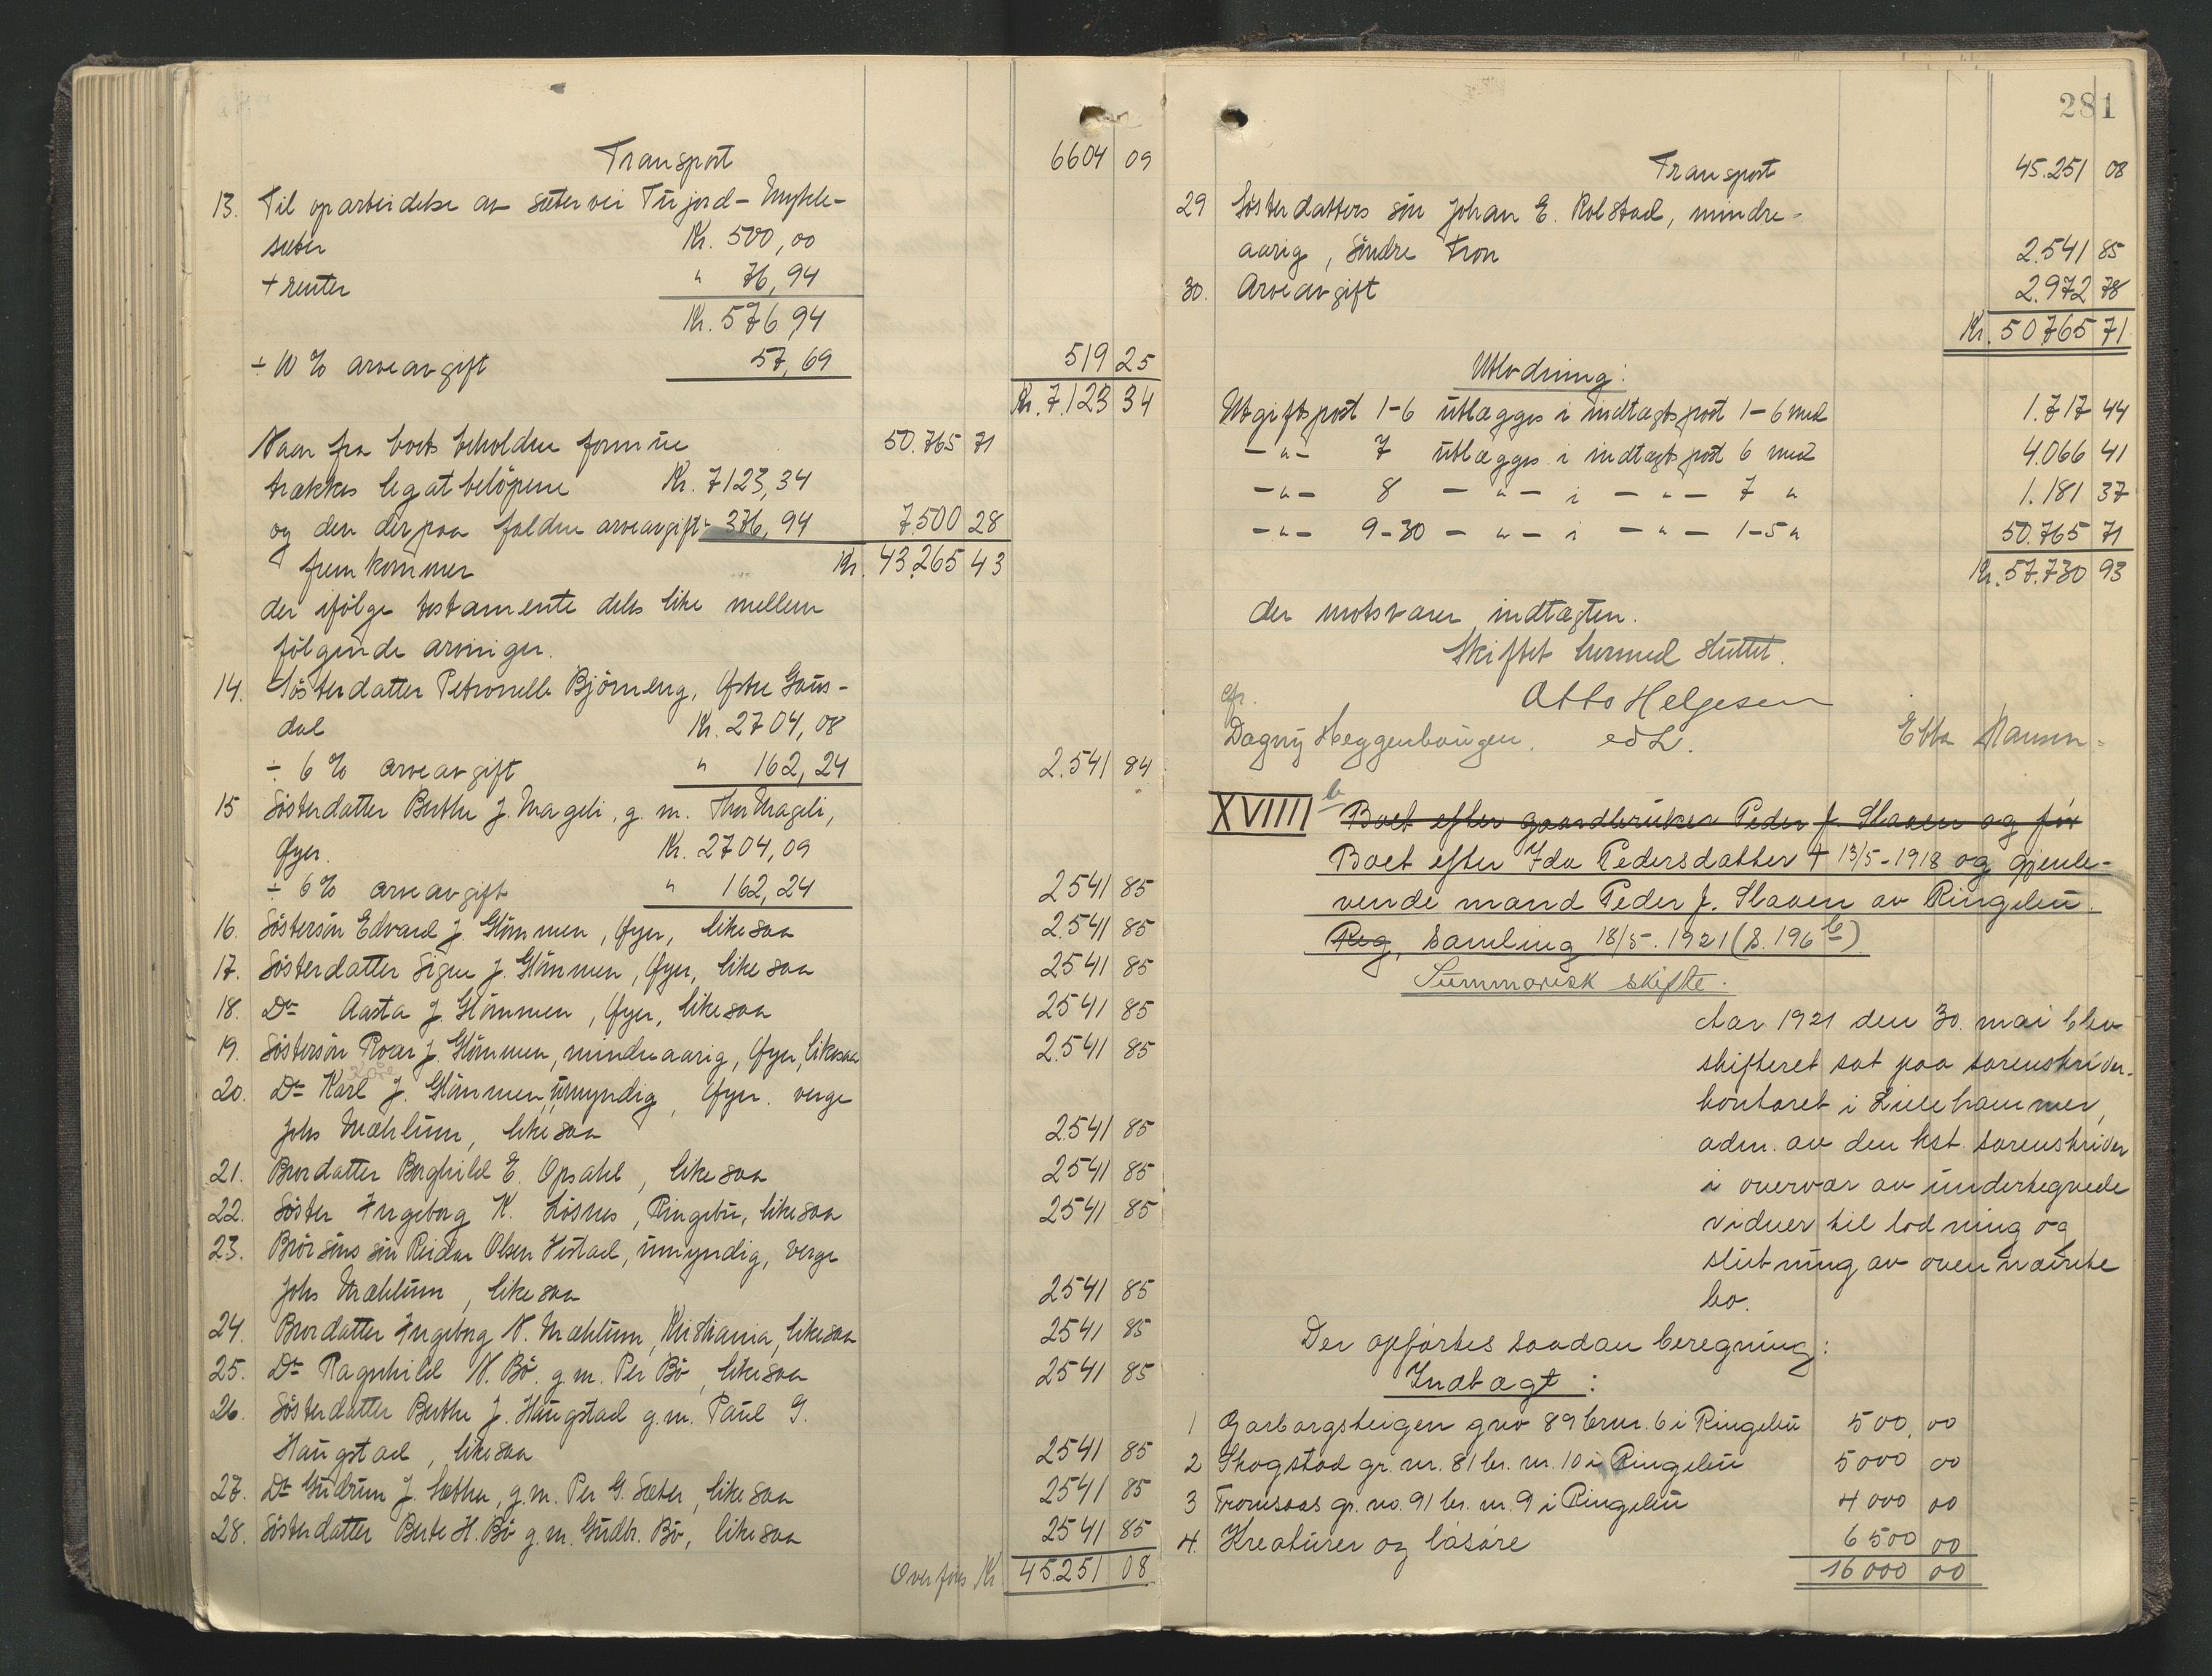 Transport 6604 09
13. Til oparbeidelse av sætervei Turjord - Mykle-
sæter Kr. 500,00
+ renter " 76,94
Kr. 576,94
÷ 10 % arveavgift 57,69 519 25
Kr. 7.123 34
Naar fra boets beholdne formue 50.765 71
trækkes legatbelöpene Kr. 7123,34
og den derpaa faldne arveavgift " 376,94 7.500 28
fremkommer Kr. 43.265 43
der ifölge testamente deles like mellem
fölgende arvinger.
14. Sösterdatter Petronelle Björneng, Östre Gaus-
dal Kr. 2704,08
÷ 6 % arveavgift " 162,24 2.541 84
15 Sösterdatter Berthe J. Mageli, g. m. Thor Mageli,
Öyer. Kr. 2704,09
÷ 6 % arveavgift " 162,24 2541 85
16. Söstersön Edvard J. Glömmen, Öyer, likesaa 2.541 85
17. Sösterdatter Signe J. Glömmen, Öyer, likesaa 2541 85
18. Do Aasta J. Glömmen, Öyer, likesaa 2541 85
19. Söstersön Roar J. Glömmen, mindreaarig, Öyer, likesaa 2.541 85
Kåre
20. Do Karl J. Glömmen, umyndig, Öyer. verge
Johs Mæhlum, likesaa 2541 85
21. Brordatter Borghild E. Opsahl, likesaa 2541 85
22. Söster Ingeborg K. Lösnes, Ringebu, likesaa 2541 85
23. Brorsöns sön Reidar Olsen Histad, umyndig, verge
Johs Mæhlum, likesaa 2541 85
24. Brordatter Ingeborg N. Mæhlum, Kristiania, likesaa 2541 85
25. Do Ragnhild N. Bö. g. m. Per Bö, likesaa 2541 85
26. Sösterdatter Berthe J. Haugstad g. m. Paul G.
Haugstad, likesaa 2541 85
27. Do Gudrun J. Sæther, g. m. Per G. Sæter, likesaa 2541 85
28. Sösterdatter Berte H. Bö g. m. Gudbr. Bö, likesaa 2541 85
Overføres Kr 45.251 08
281
Transport 45.251 08
29 Sösterdatters sön Johan E. Rolstad, mindre-
aarig, Söndre Fron 2.541 85
30. Arveavgift 2.972 78
Kr. 50765 71
Utlodning:
Utgiftspost 1-6 utlægges i indtægtspost 1-6 med 1.717 44
- " - 7 utlægges i indtægtspost 6 med 4.066 41
- " - 8 - " - i - " - 7 " 1.181 37
- " - 9-30 - " - i - " - 1-5 " 50.765 71
Kr. 57.730 93
der motsvarer indtægten.
Skiftet hermed sluttet.
Otto Helgesen
cfr.
Dagny Heggenhougen. edL. Ebba Hansen
XVIIII b Boet efter gaardbruker Peder J. Slaaen og før
Boet efter Ida Pedersdatter † 13/5-1918 og gjenle-
vende mand Peder J. Slaaen av Ringebu.
Reg. Samling 18/5. 1921 (S. 196 b)
Summarisk skifte.
Aar 1921 den 30. mai blev
skifteret sat paa sorenskriver-
kontoret i Lillehammer,
adm. av den kst. sorenskriver
i overvær av undertegnede
vidner til lodning og
slutning av ovennævnte
bo.
Der opførtes saadan beregning:
Indtægt:
1 Garborgsteigen gno 89 brnr. 6 i Ringebu 500,00
2 Skogstad gr. nr. 81 br. nr. 10 i Ringebu 5000 00
3 Tromsaas gr. no. 91 br. nr. 9 i Ringebu 4 000 00
4. Kreaturer og løsøre 6 500 00
16 000 00